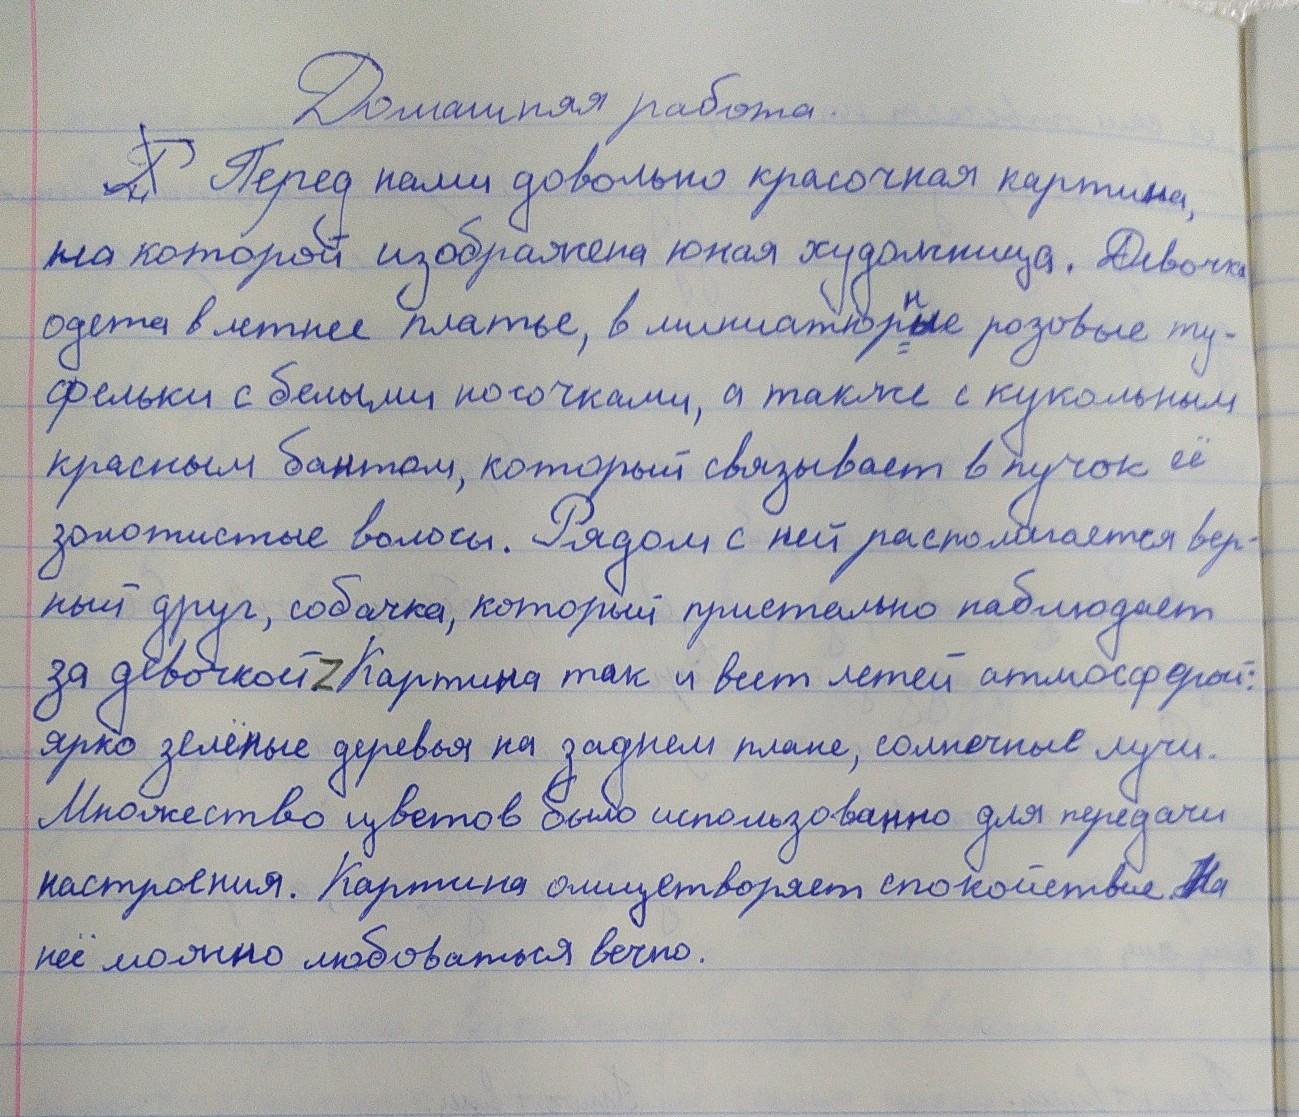 Домашняя работа.
Перед нами довольно красочная картина,
на которой изображена юная художница. Девочка
одета в летнее платье, в миниатюрные розовые ту-
фельки с белыми носочками, а также с кукольным
красным бантом, который связывает в пучок её
золотистые волосы. Рядом с ней располагается вер-
ный друг, собачка, который пристально наблюдает
за девочкой Z Картина так и веет летей атмосферой:
ярко зелёные деревья на заднем плане, солнечные лучи.
Множество цветов было использованно для передачи
настроения. Картина олицетворяет спокойствие. На
неё можно любоваться вечно.